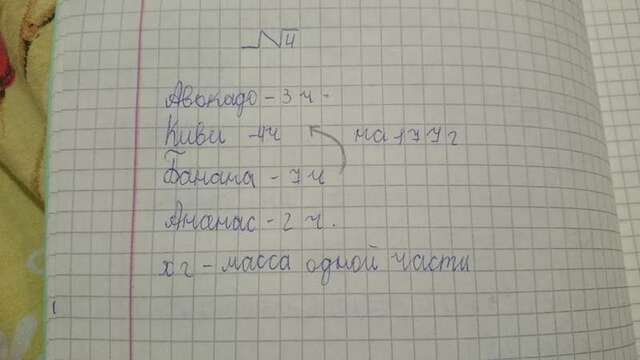 №4
Авокадо - 3 ч -
Киви - 4ч на 177 г
Банана - 7 ч
Ананас - 2 ч.
х г - масса одной части